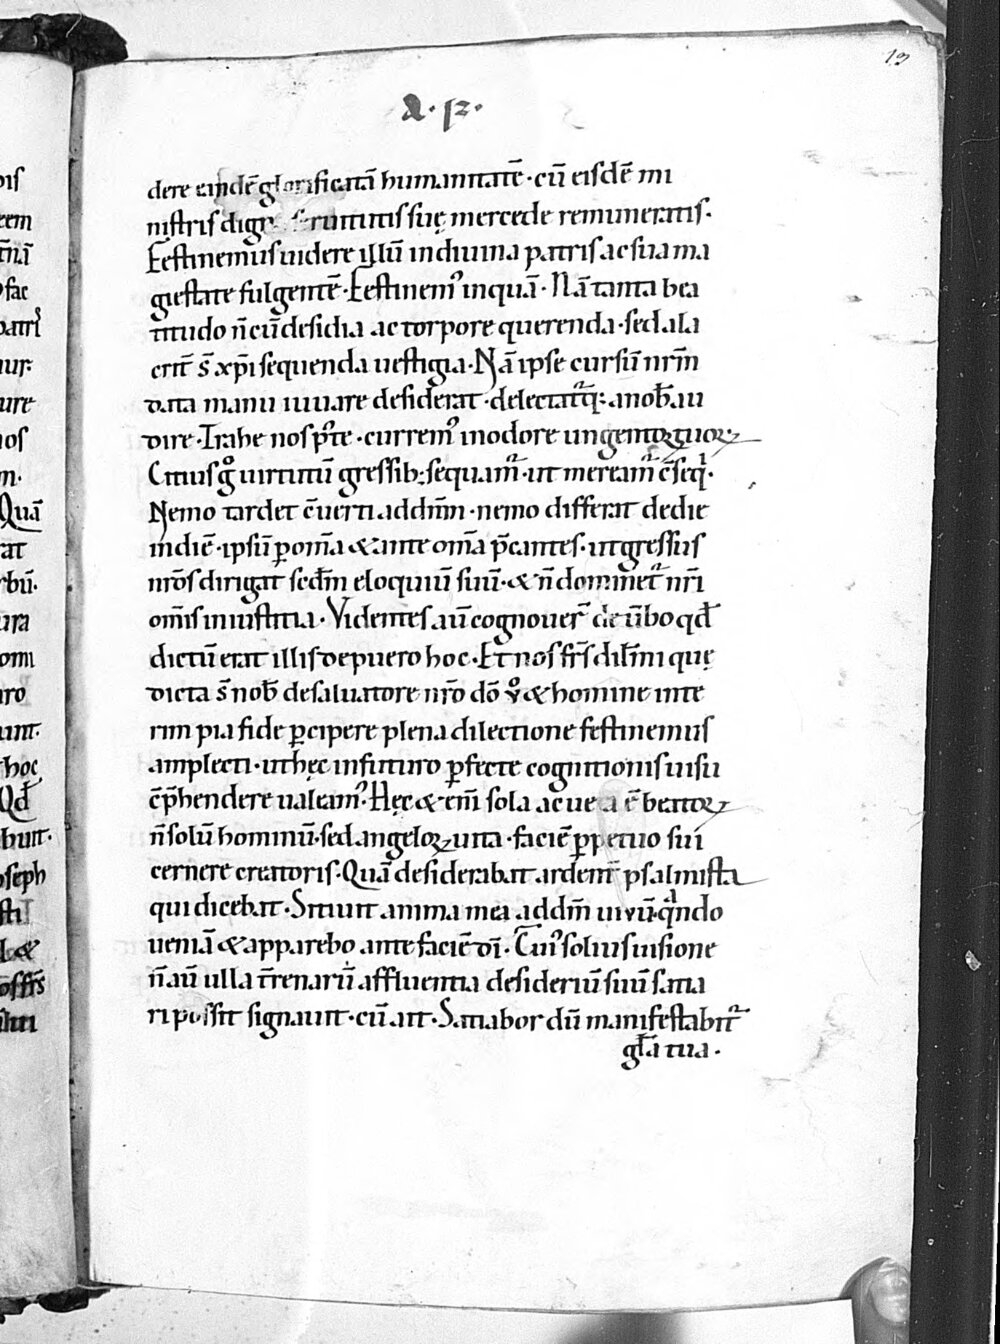 13
dere eandē glorificatā humanitatē · cū eisdē mi
nistris dign seruitutis suę mercede remuneratis·
Festinemus uidere illū in diuina patris ac sua ma
giestate fulgentē · Festinem᾽ inquā · Nā tanta bea
titudo ñ cū desidia ac torpore querenda · sed ala
crit̄ s̄ xp̄i sequenda uestigia · Nā ipse cursū nr̄m
data manu iuuare desiderat · delectat᷑q; a nob̄ au
dire · Trahe nos p᷑ te · currem᾽ in odore ungentoꝝ tuoꝝ
Citius g̊ uirtutū gressib; sequam᷑ · ut meream᷑ c̄seqͥ·
Nemo tardet c̄uerti ad dn̄m · nemo differat de die
in diē · ipsū ꝑ om̄a & ante om̄a p̄cantes · ut gressus
nr̄os dirigat scd̄m eloquiū suū · & ñ dominet᷑ nr̄i
om̄is iniustitia · Videntes aū cognouer̄ de ūbo qd̄
dictū erat illis de puero hoc · Et nos fr̄s dil̄mi quę
dicta s̄ nob̄ de saluatore nr̄o dō v̊ & homine inte
rim pia fide ꝑcipere plena dilectione festinemus
amplecti · ut hęc in futuro ꝑfecte cognitionis uisu
c̄p̄hendere ualeam᾽ · Hęc & eni᷑ sola ac uera ē beatoꝝ
ñ solū hominū · sed angeloꝝ uita · faciē ꝑpetuo sui
cernere creatoris · Quā desiderabat ardent̄ psalmista
qui dicebat · Sitiuit anima mea ad dm̄ uiuū · qͣndo
ueniā & apparebo ante faciē dī · Cui᾽ solius uisione
ñ aū ulla t̄renarū affluentia desideriū suū satia
ri possit signauit · cū ait · Satiabor dū manifestabit᷑
gl̄a tua ·